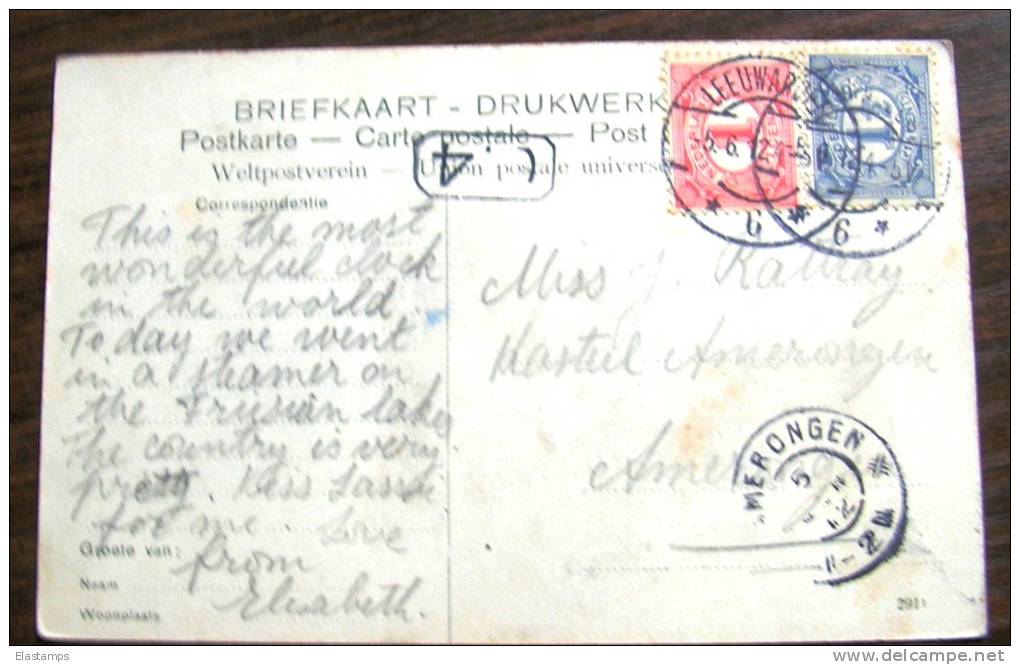 BRIEFKAART - DRUKWERK
Postkarte — Carte postale — Post
Weltpostverein — Union postale universe
Correspondentie
This is the most
wonderful clock
in the world.
To day we went
in a steamer on
the Frusian lakes
the country is very
pretty. Kiss
for me. Love
from
Elisabeth.
Groete van:
Naam
Woonplaats
4
LEEUWARDEN
5.6.12
1
NEDERLAND
6
6
Miss J.
Kasteel Amerongen
MERONGEN
5
2911
Elastamps
delcampe.net